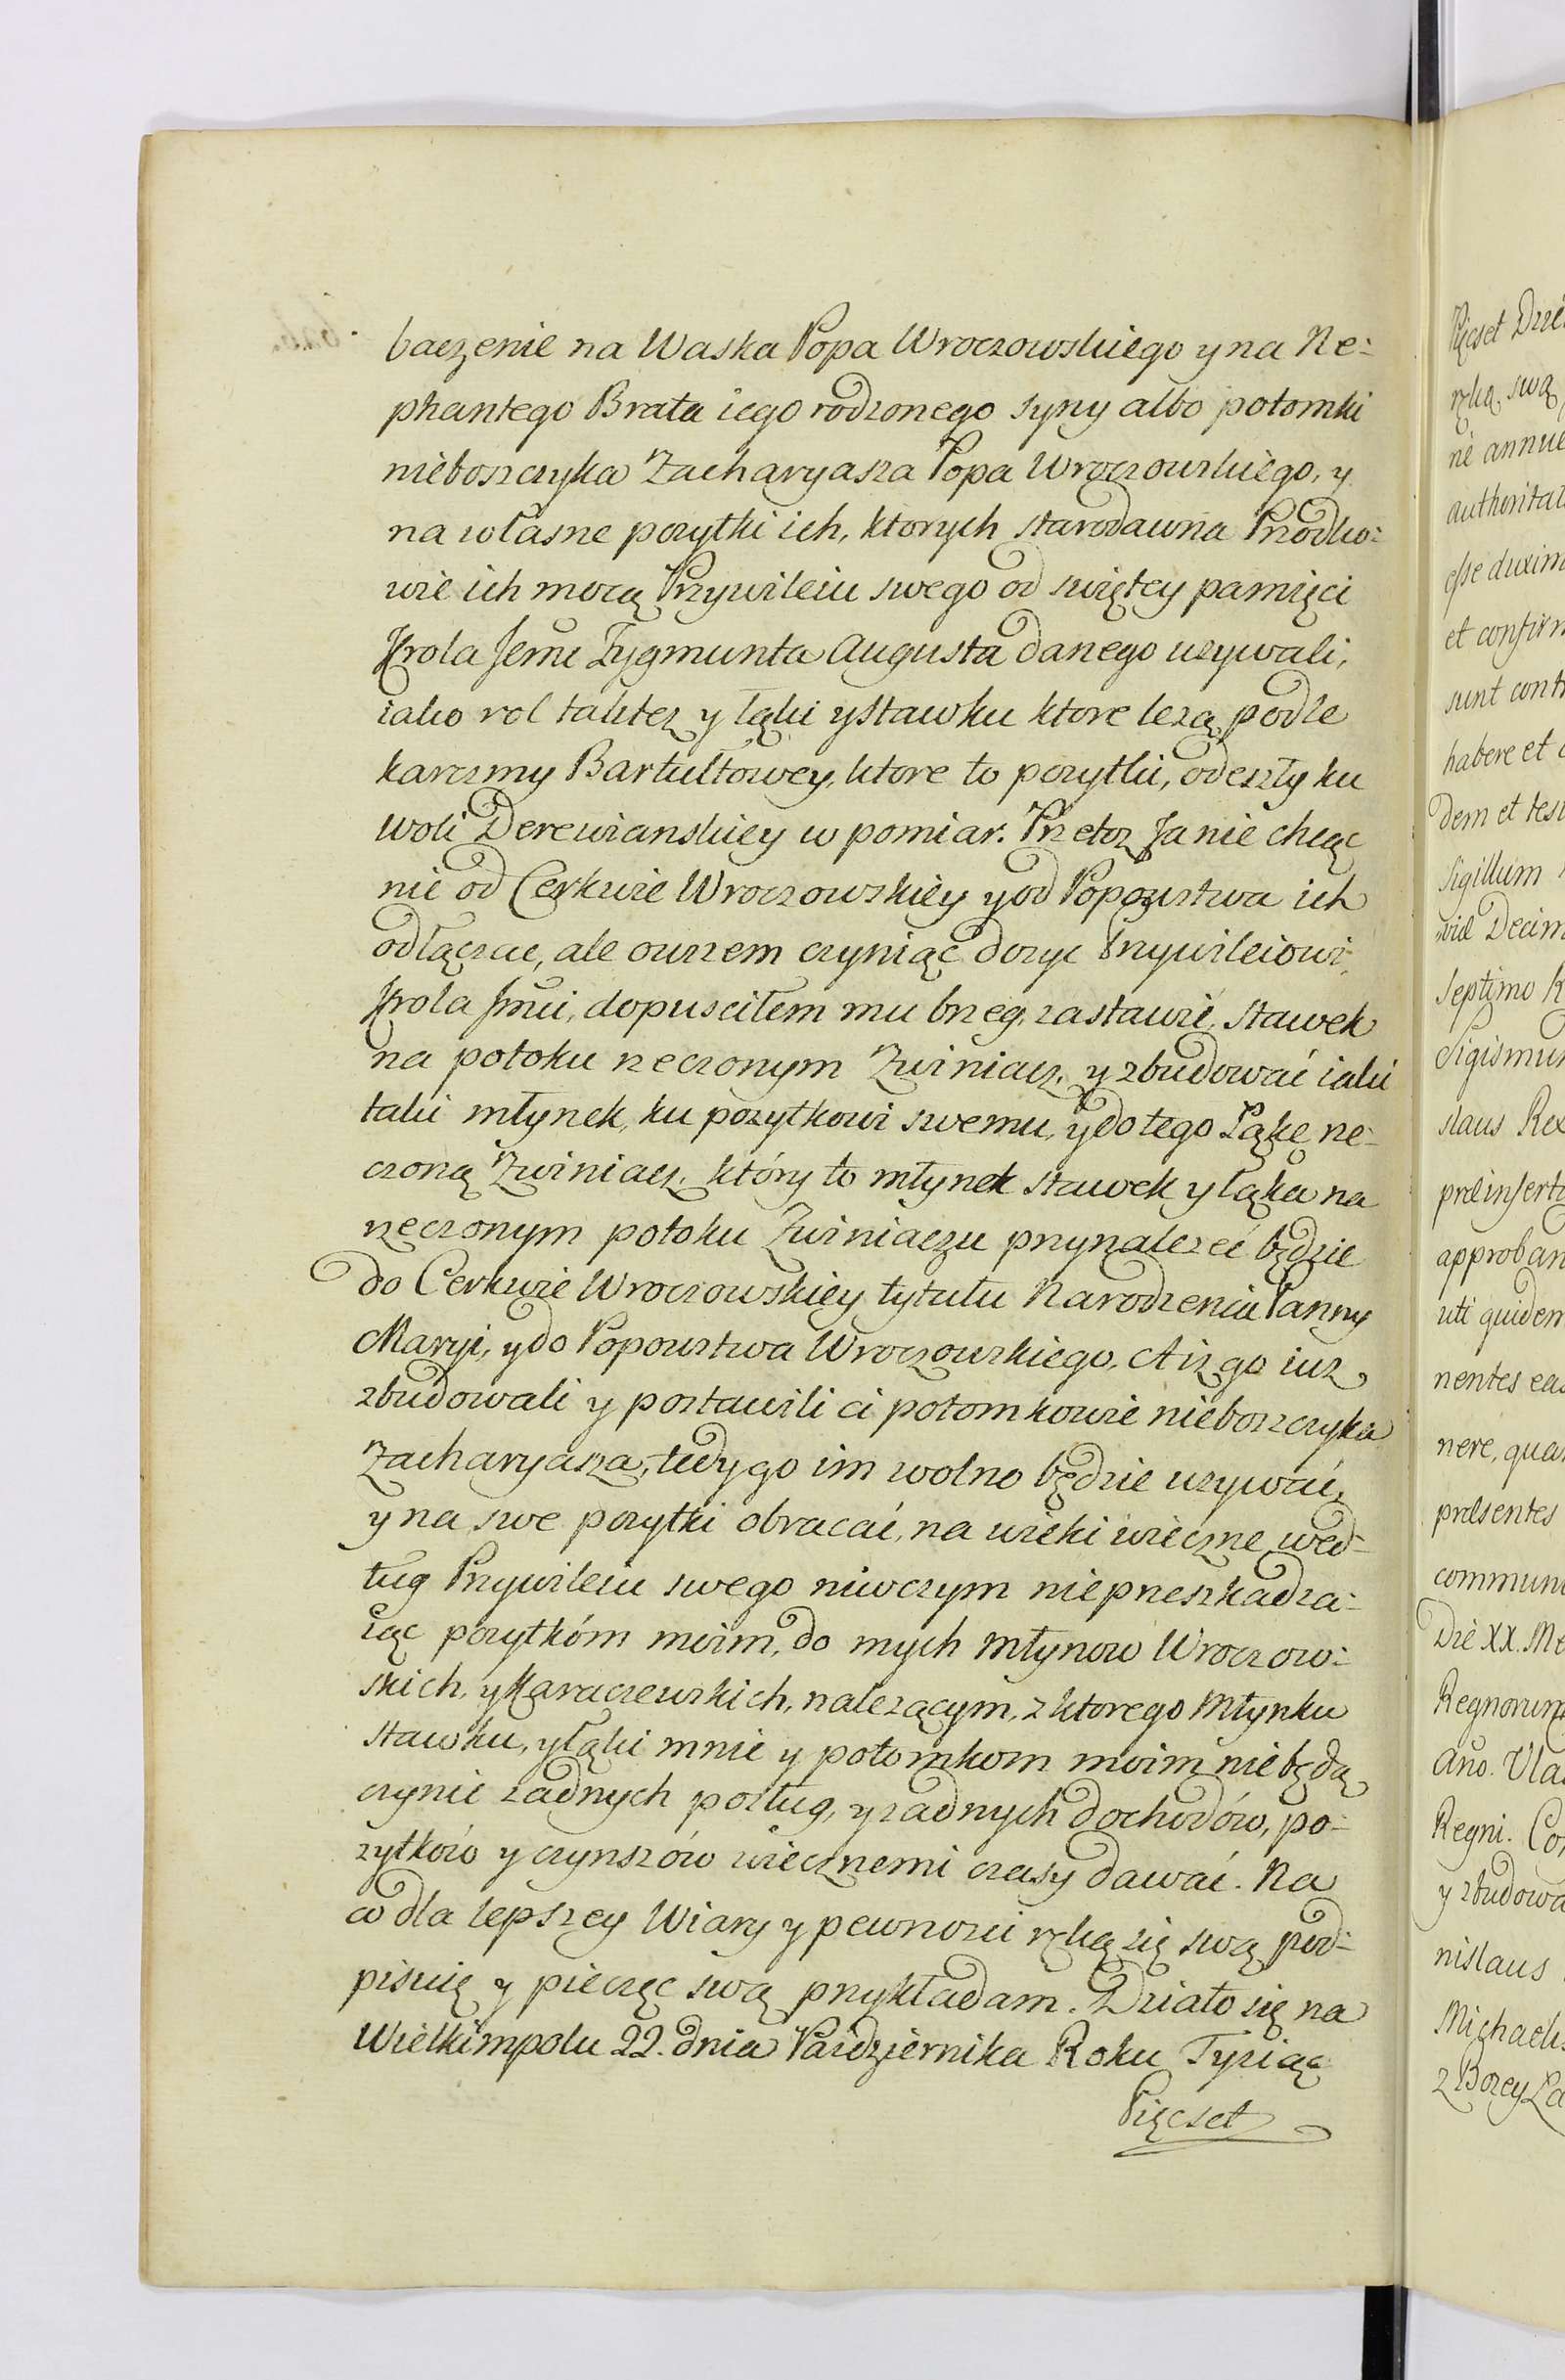 baczenie na Waska Popa Wroczowskiego y na Ne-
phantego Brata iego rodzonego syny albo potomki
nieboszczyka Zacharyasza Popa Wroczowskiego, y
na własne pozytki ich, ktorych starodawna Przodko-
wie ich mocą Przywileiu swego od swiętey pamięci
Krola Jemci Zygmunta Augusta danego uzywali,
iako rol takiez y łąki y stawku ktore lezą podle
karczmy Bartultowey, ktore to pozytki, odeszły ku
woli Derewianskiey w pomiar. Przetoz Ja nie chcąc
nie od Cerkwie Wroczowskiey y od Popowstwa ich
odłączac, ale owszem czyniąc dozyc Przywileiowi
Krola Jmci, dopuscilem mu brzeg, zastawic, stawek
na potoku rzeczonym Zwiniacz, y zbudować iaki
taki młynek, ku pozytkowi swemu, y do tego Łąkę rze-
czoną Zwiniacz, który to młynek stawek y łąka na
rzeczonym potoku Zwiniaczu przynalezeć będzie
do Cerkwie Wroczowskiey tytułu Narodzenia Panny
Maryi, y do Popowstwa Wroczowskiego, A iz go iuz
zbudowali y postawili ci potomkowie nieboszczyka
Zacharyasza, tedy go im wolno będzie uzywać,
y na swe pozytki obracać, na wieki wieczne wed-
ług Przywileiu swego niwczym nieprzeszkadza-
iąc pozytkóm moim, do mych Młynow Wroczow-
skich, y Karaczewskich, nalezącym, z ktorego Młynku
stawku, y łąki mnie y potomkom moim niebędą
czynic zadnych posług, y zadnych dochodów, po-
zytków y czynszów wiecznemi czasy dawać. Na
co dla lepszey Wiary y pewnosci ręką się swą pod-
pisuię y pieczęc swą przykładam. Działo się na
Wielkimpolu 22. dnia Pazdziernika Roku Tysiąc
Pięcset